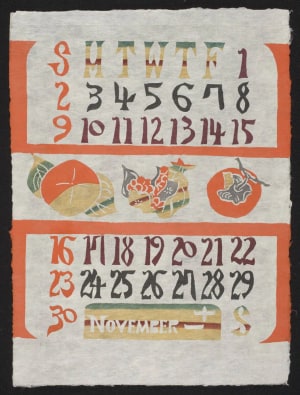 S M T W T F 1
2 3 4 5 6 7 8
9 10 11 12 13 14 15
16 17 18 19 20 21 22
23 24 25 26 27 28 29
30 NOVEMBER 十一 S